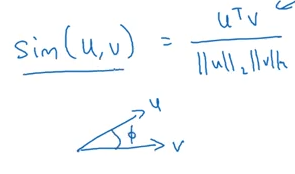 sim(u,v) = uᵀv / ||u||₂||v||₂
u
ϕ
v